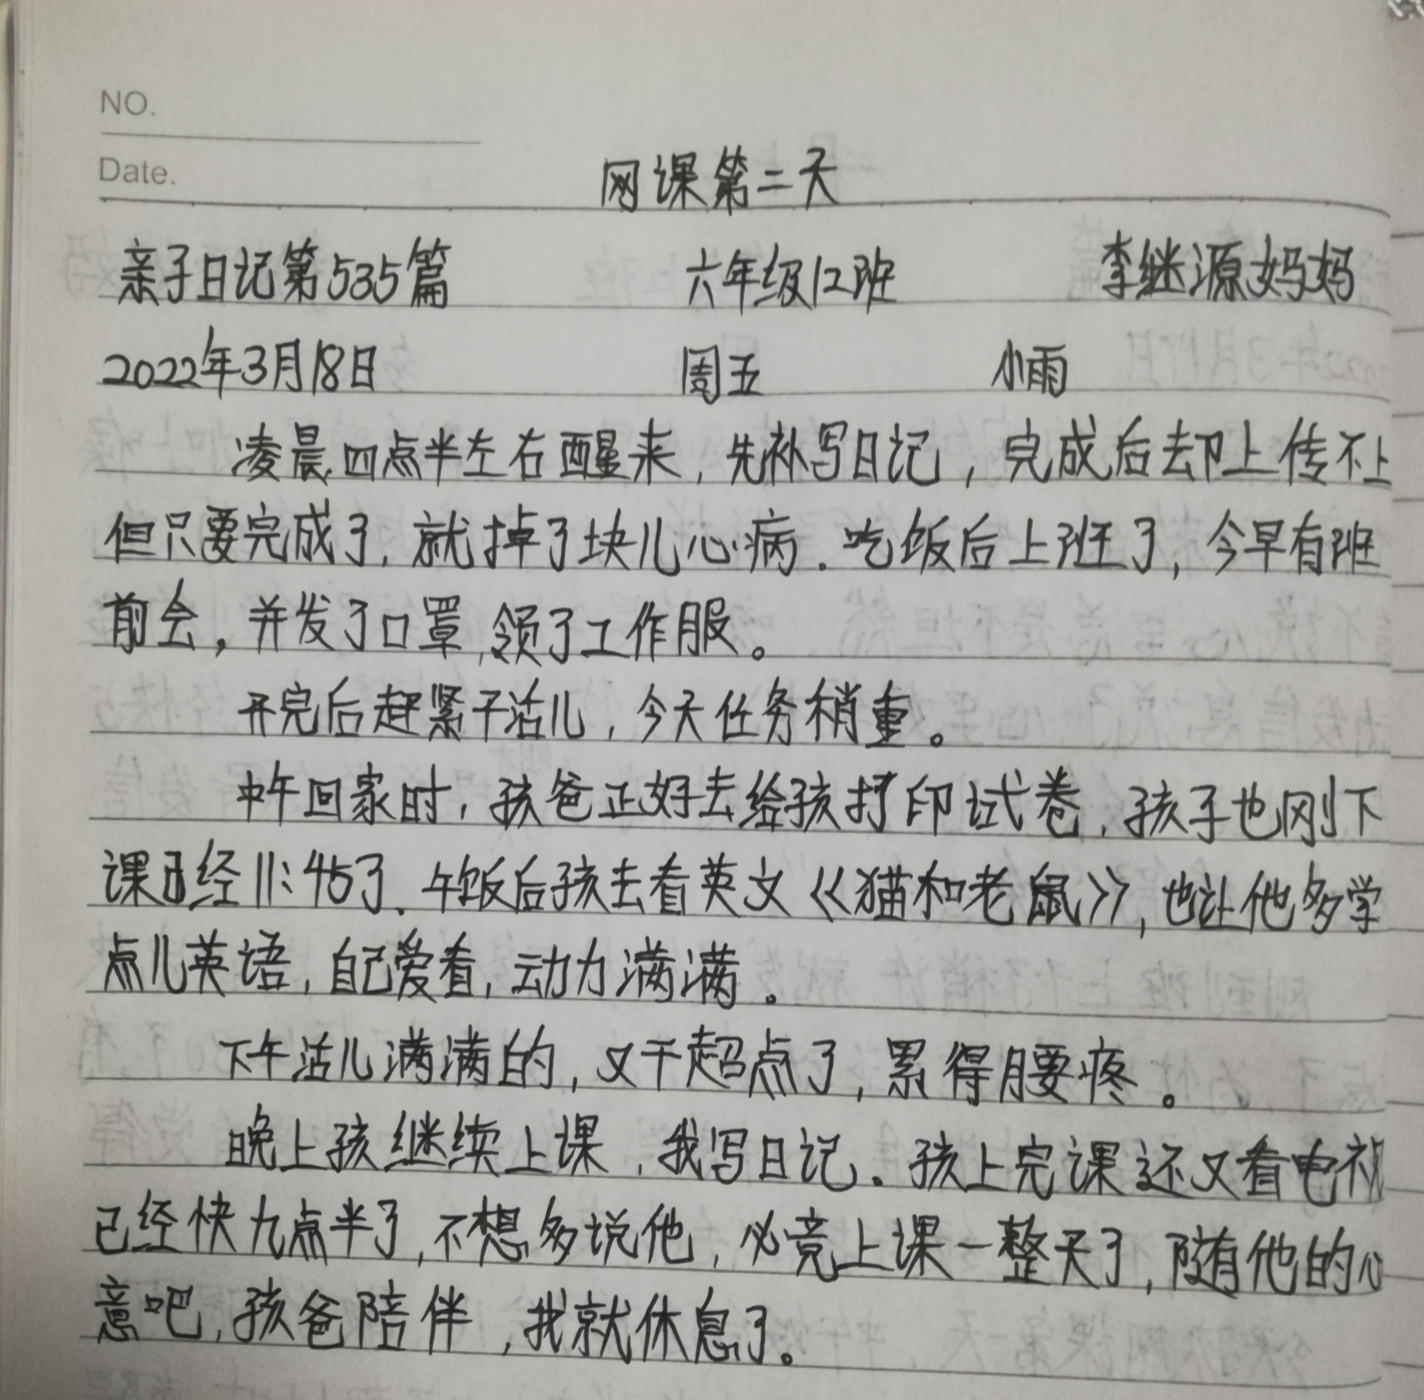 NO.
Date.
网课第二天
亲子日记第535篇 六年级12班 李继源妈妈
2022年3月18日 周五 小雨
凌晨四点半左右醒来，先补写日记，完成后去却上传不上
但只要完成了，就掉了块儿心病．吃饭后上班了，今早有班
前会，并发了口罩，领了工作服。
开完后赶紧干活儿，今天任务稍重。
中午回家时，孩爸正好去给孩打印试卷，孩子也刚下
课已经11:45了．午饭后孩去看英文《猫和老鼠》，也让他多学
点儿英语，自己爱看，动力满满．
下午活儿满满的，又干超点了，累得腰疼。
晚上孩继续上课，我写日记．孩上完课还又看电视
已经快九点半了，不想多说他，必竟上课一整天了，随他的心
意吧，孩爸陪伴，我就休息了。